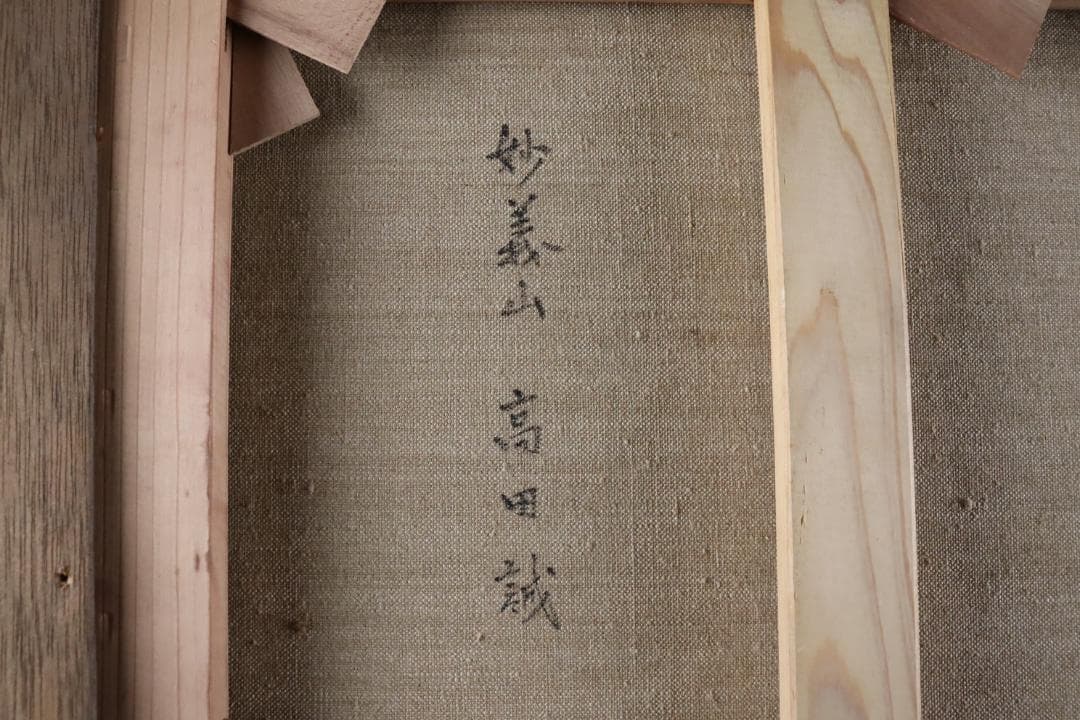 妙義山 高田誠